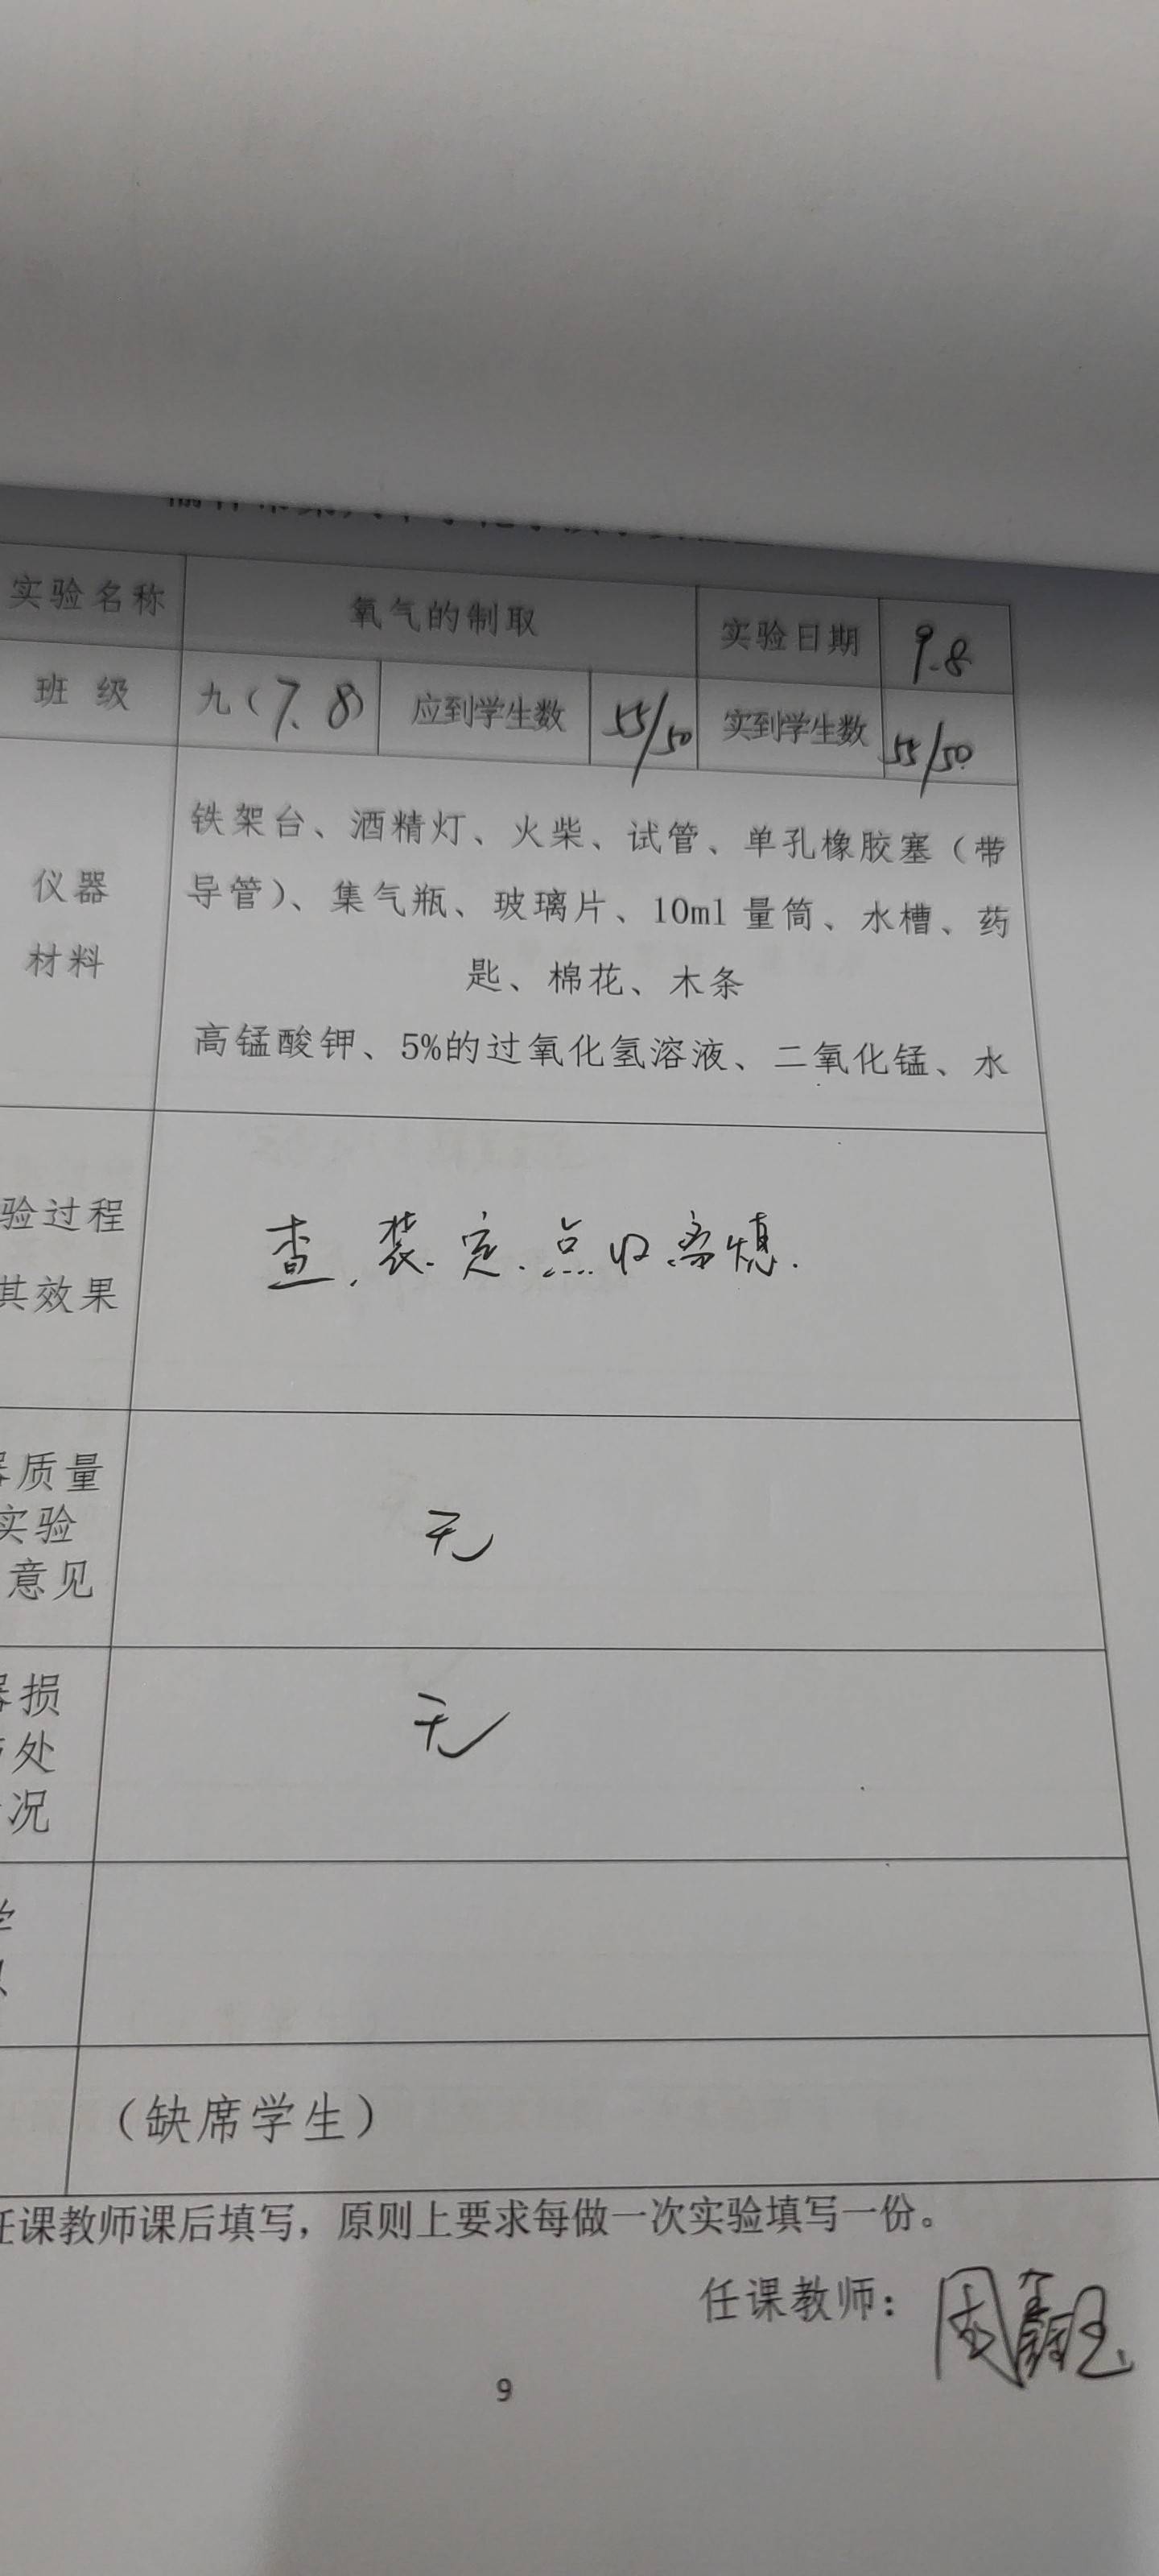 实验名称 氧气的制取 实验日期 9.8
班 级 九（7.8） 应到学生数 55/50 实到学生数 55/50
铁架台、酒精灯、火柴、试管、单孔橡胶塞（带
仪器 导管）、集气瓶、玻璃片、10ml 量筒、水槽、药
材料 匙、棉花、木条
高锰酸钾、5%的过氧化氢溶液、二氧化锰、水
验过程 查.装.定.点收离熄.
其效果
器质量
实验 无
意见
器损 无
处
况
学
（缺席学生）
任课教师课后填写，原则上要求每做一次实验填写一份。
任课教师：周
9